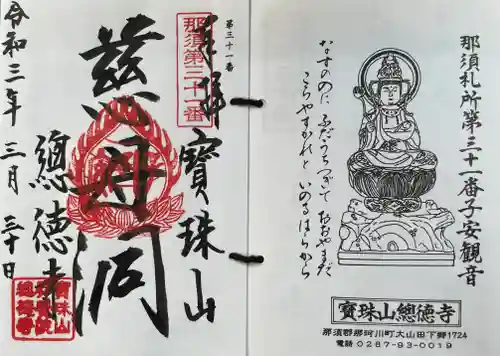 那須札所第三十一番子安観音
なすののに ふだうちつぎて おおやまだ
こころやすかれと いのるはらから
寳珠山總徳寺
那須郡那珂川町大山田下郷1724
電話 0287-93-0019
第三十一番
那須第三十一番
奉拝
寳珠山
慈母洞
總徳寺
令和三年 三月 三十日
寳珠山
總徳寺